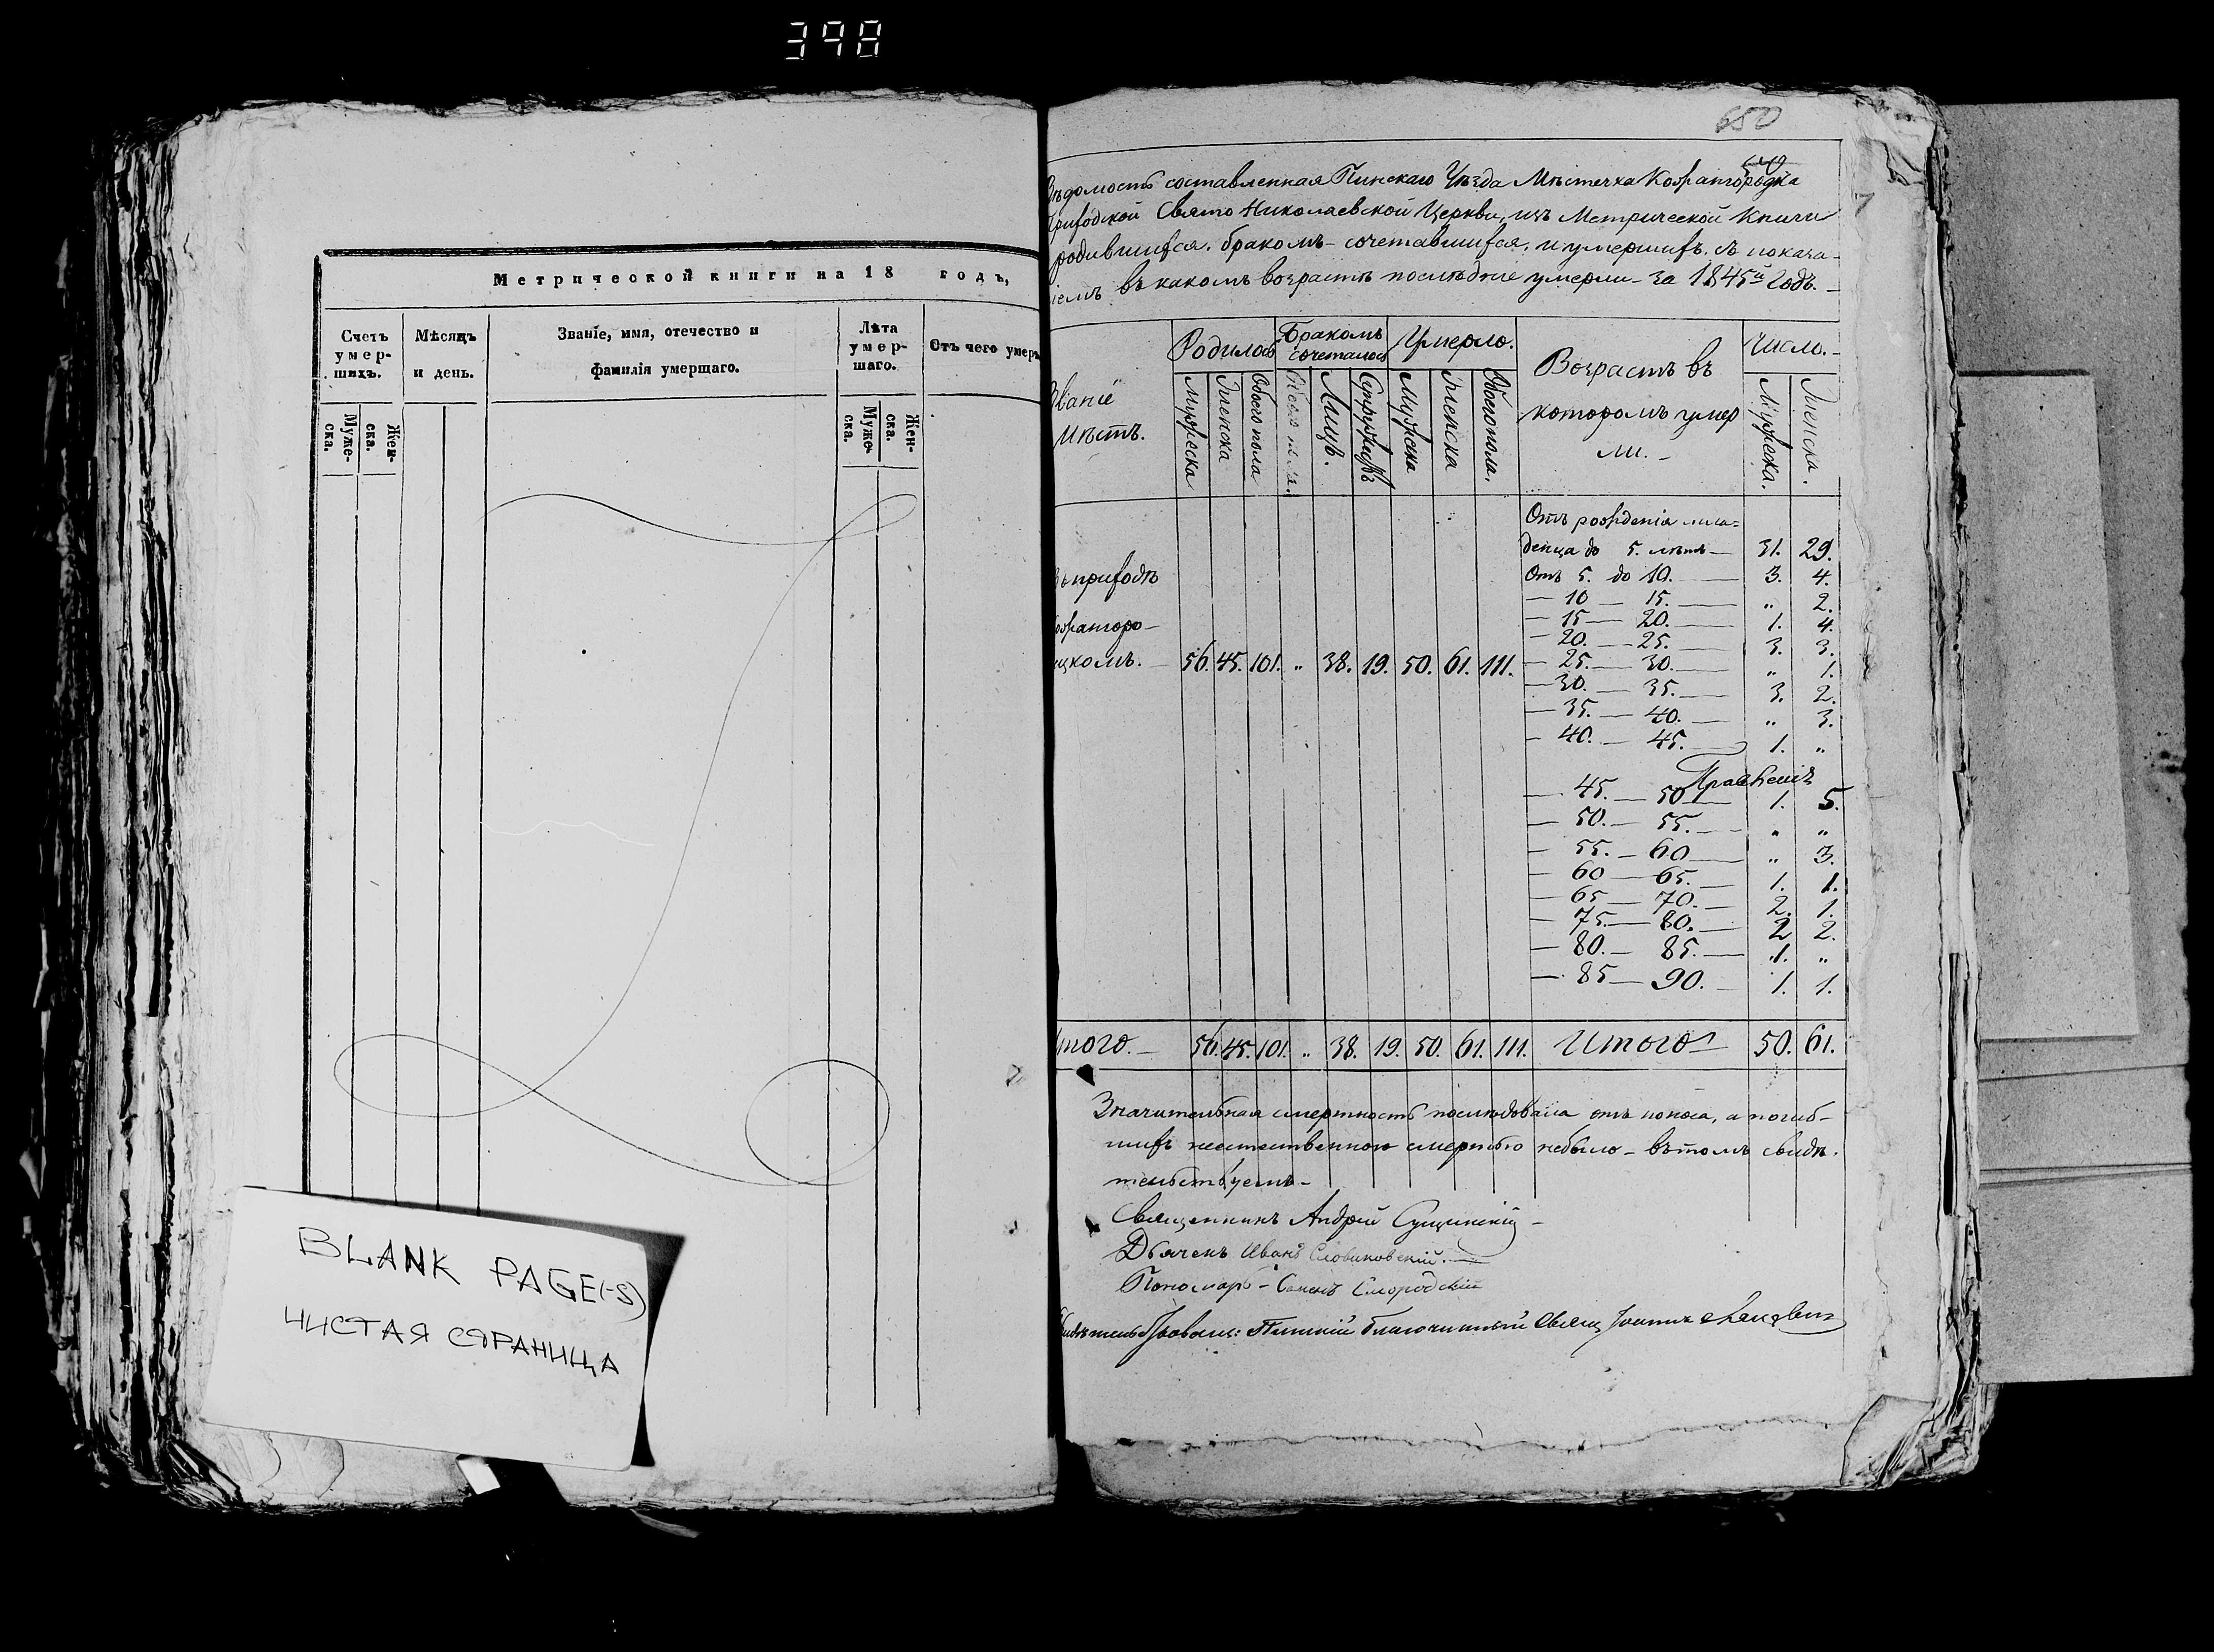 398
Метрической книги на 18 годъ,
Счетъ умер-шихъ.
Мѣсяцъ и день.
Званіе, имя, отечество и
фамилія умершаго.
Лѣта умер-шаго.
Отъ чего умеръ
Муже-ска.
Жен-ска.
Муже-ска.
Жен-ска.
BLANK PAGE(-S)
ЧИСТАЯ СТРАНИЦА
650
Вѣдомость составленная Пинскаго Уѣзда Мѣстечка Кожангородка
Приходской Свято Николаевской Церкви, изъ Метрической Книги
родившихся, бракомъ-сочетавшихся, и умершихъ, съ показа-
ніемъ въ какомъ возрастѣ послѣдніе умерли - за 1845й Годъ.
Званіе
Мѣстъ.
Родилось
Бракомъ сочеталось
Умерло.
Возрастъ въ
которомъ умер
ли. -
Число. -
Мужеска
Женска
Обоего пола
Лицъ.
Супружествъ
Мужеска
Женска
Обоего пола.
Мужеска.
Женска.
Отъ рожденія мла=
денца до 5. лѣтъ — 31. 29.
Отъ 5. до 10. — 3. 4.
— 10 — 15. — „ 2.
— 15 — 20. — 1. 4.
— 20. — 25. — 3. 3.
— 25. — 30. — „ 1.
— 30. — 35. — 3. 2.
— 35. — 40. — „ 3.
— 40. — 45. — 1. „
— 45. — 50 — 1. 5.
— 50. — 55. — „ „
— 55. — 60 — „ 3.
— 60 — 65. — 1. 1.
— 65 — 70. — 2. 1.
— 75. — 80. — 2 2.
— 80. — 85. — 1. „
— 85 — 90. — 1. 1.
въ приходѣ
Кожангоро-
дцкомъ. — 56. 45. 101. „ 38. 19. 50. 61. 111.
Итого. — 56. 45. 101. „ 38. 19. 50. 61. 111. Итого 50. 61.
Значительная смертность послѣдовала отъ поноса, а погиб-
шихъ неестественною смертью небыло - въ томъ свидѣ-
тельствуемъ -
Священникъ Андрей Сущинскій -
Дьячекъ Иванъ Словиковскій. —
Пономарь - Семенъ Смородскій
Свидѣтельствовалъ: Пинскій благочинный Свящ Іоаннъ